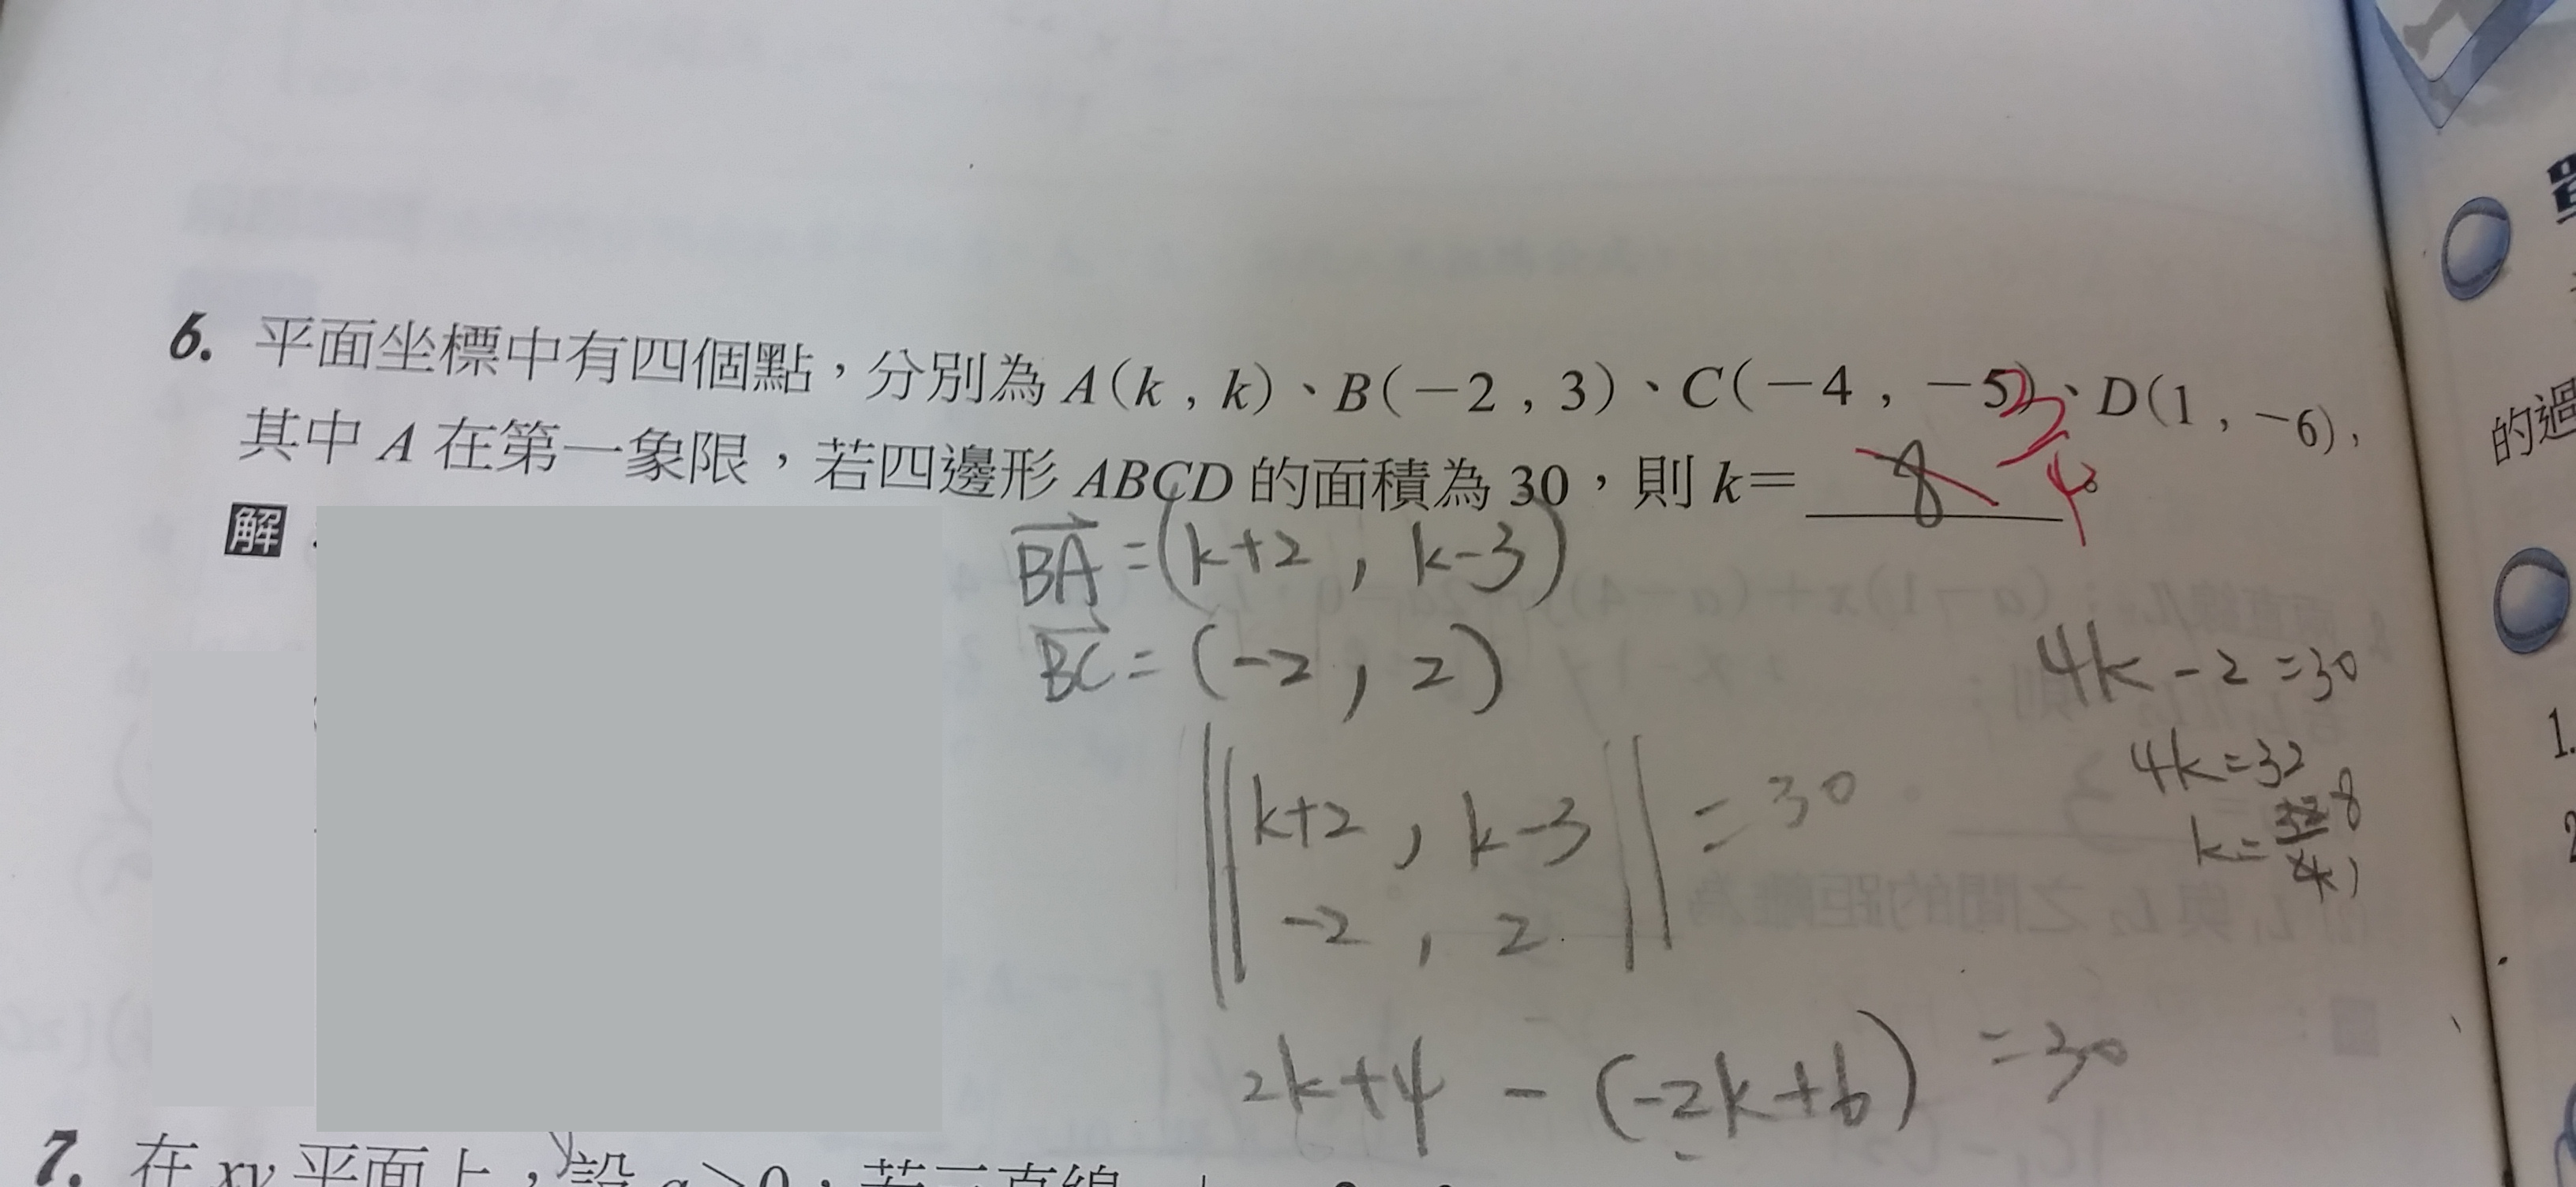 6. 平面坐標中有四個點，分別為 A(k , k)、B(−2 , 3)、C(−4 , −5)、D(1 , −6)，
其中 A 在第一象限，若四邊形 ABCD 的面積為 30，則 k= 8 4。
解
BA = (k+2 , k-3)
BC = (-2 , 2)
k+2 , k-3 = 30
-2 , 2
2k+4 - (-2k+6) = 30
4k - 2 = 30
4k = 32
k = 32 8
4 1
7. 在 xy 平面上，設 a>0，若二直線
的過
1.
2